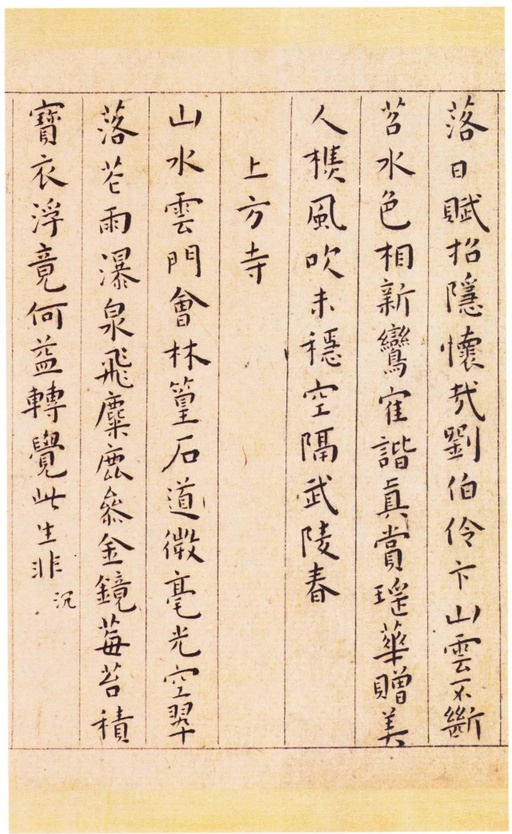 落日賦招隱懷哉劉伯伶卞山雲不斷
苕水色相新鸞隺諧真賞瑤華贈美
人檥風吹未穩空隔武陵春
上方寺
山水雲門會林篁石道微毫光空翠
落花雨瀑泉飛麋鹿叅金鏡莓苔積
寶衣浮竟何益轉覺此生非
沉